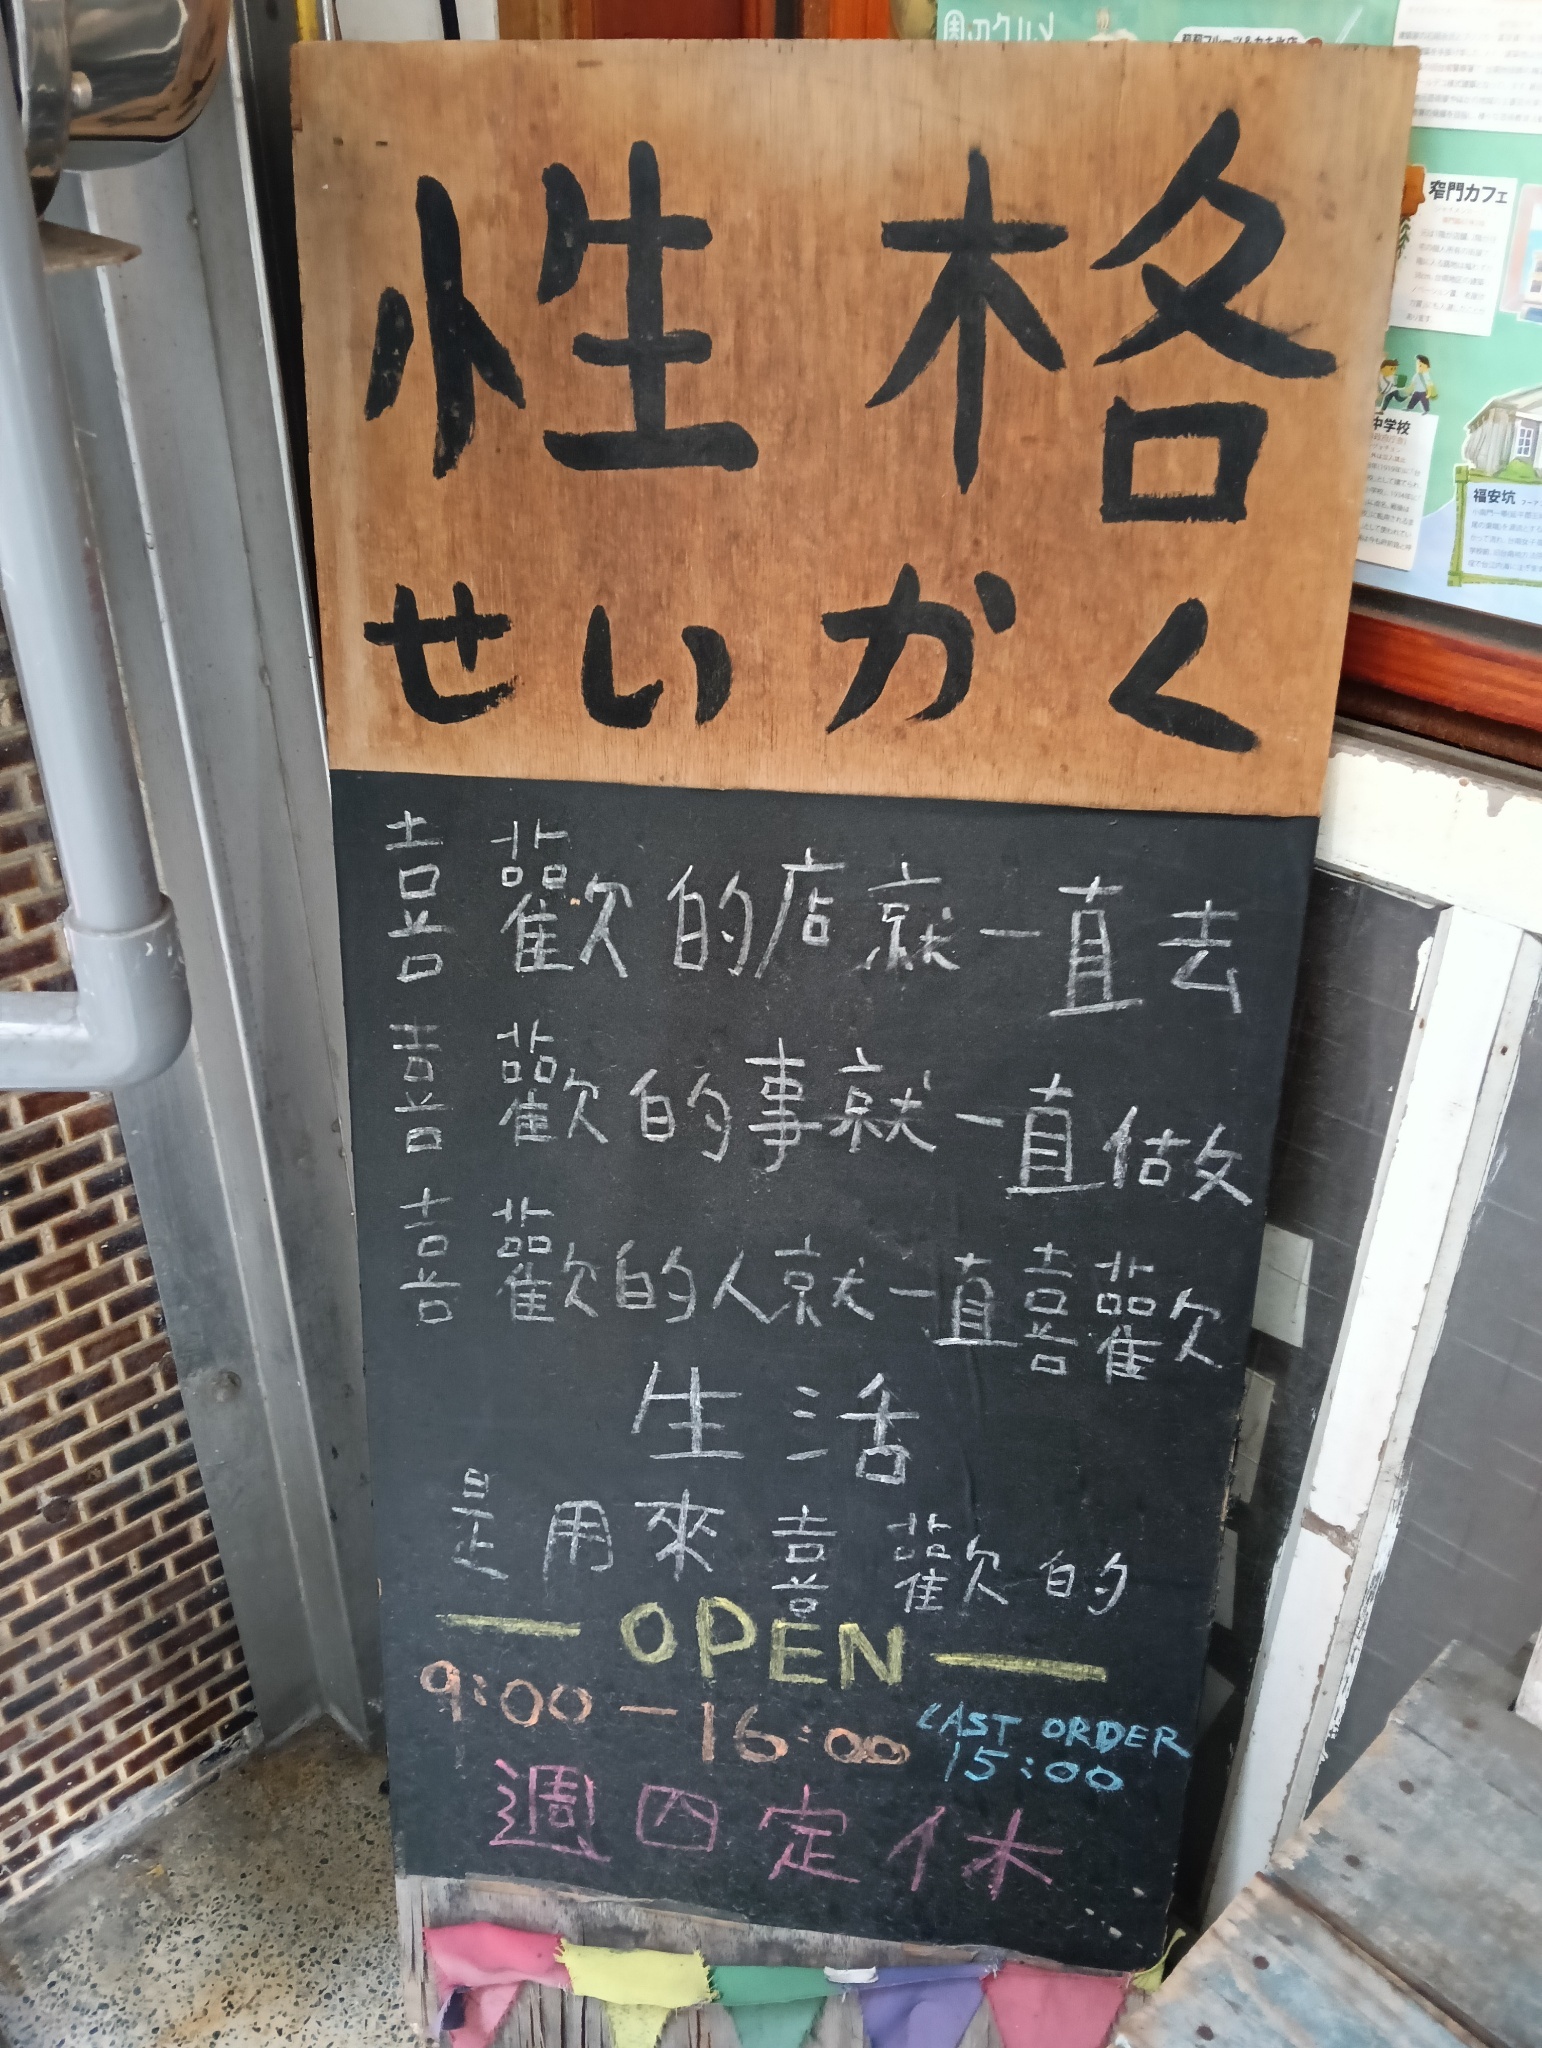 性格
せいかく
喜歡的店就一直去
喜歡的事就一直做
喜歡的人就一直喜歡
生活
是用來喜歡的
OPEN
9:00-16:00 LAST ORDER
15:00
週四定休
窄門カフェ
中学校
福安坑